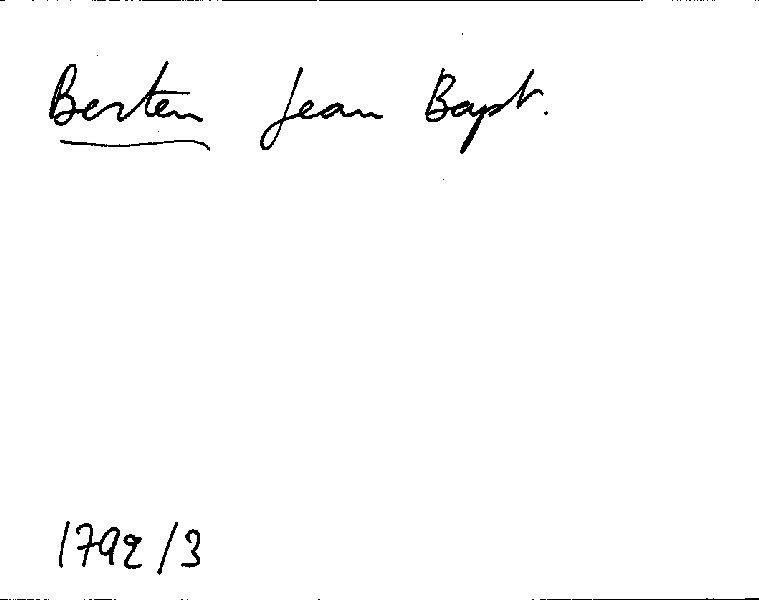 Berten Jean Bapt.
1792/3